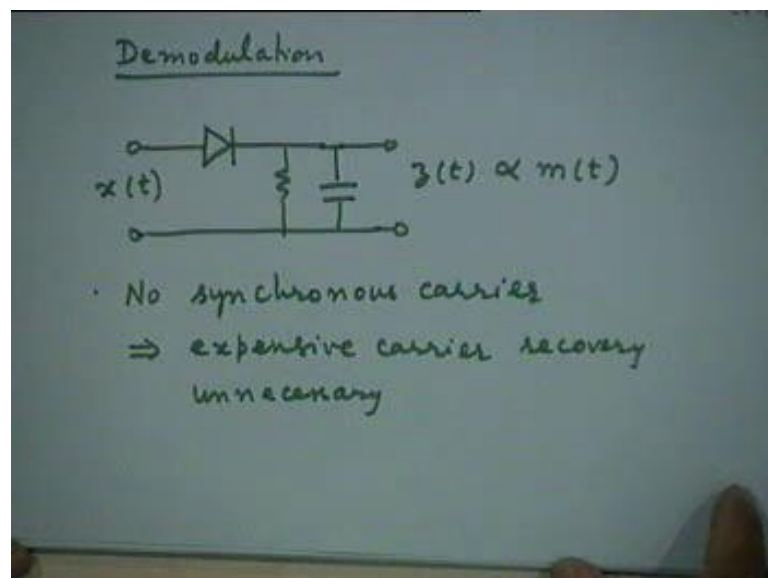 Demodulation
x(t)
z(t) ∝ m(t)
· No synchronous carrier
⇒ expensive carrier recovery
unnecessary